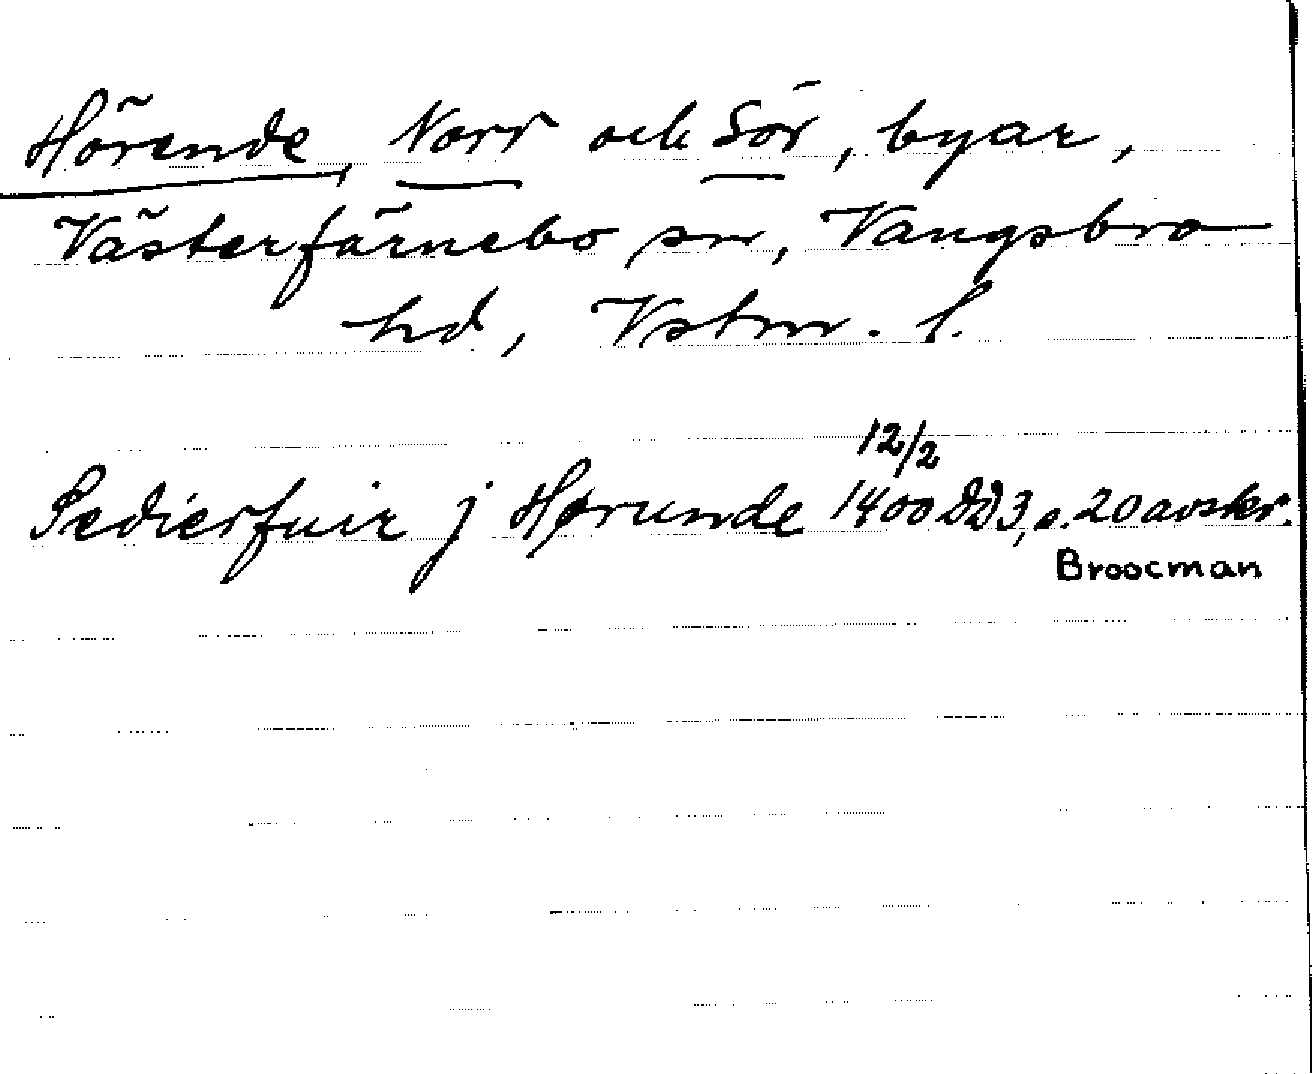 Hörende, Norr och Sör, byar,
Västerfärnebo sn, Vangsbro
hd, Vstm. l.
12/2
Pedierfuir j Hørunde 1400 DD3, s. 20 avskr.
Broocman